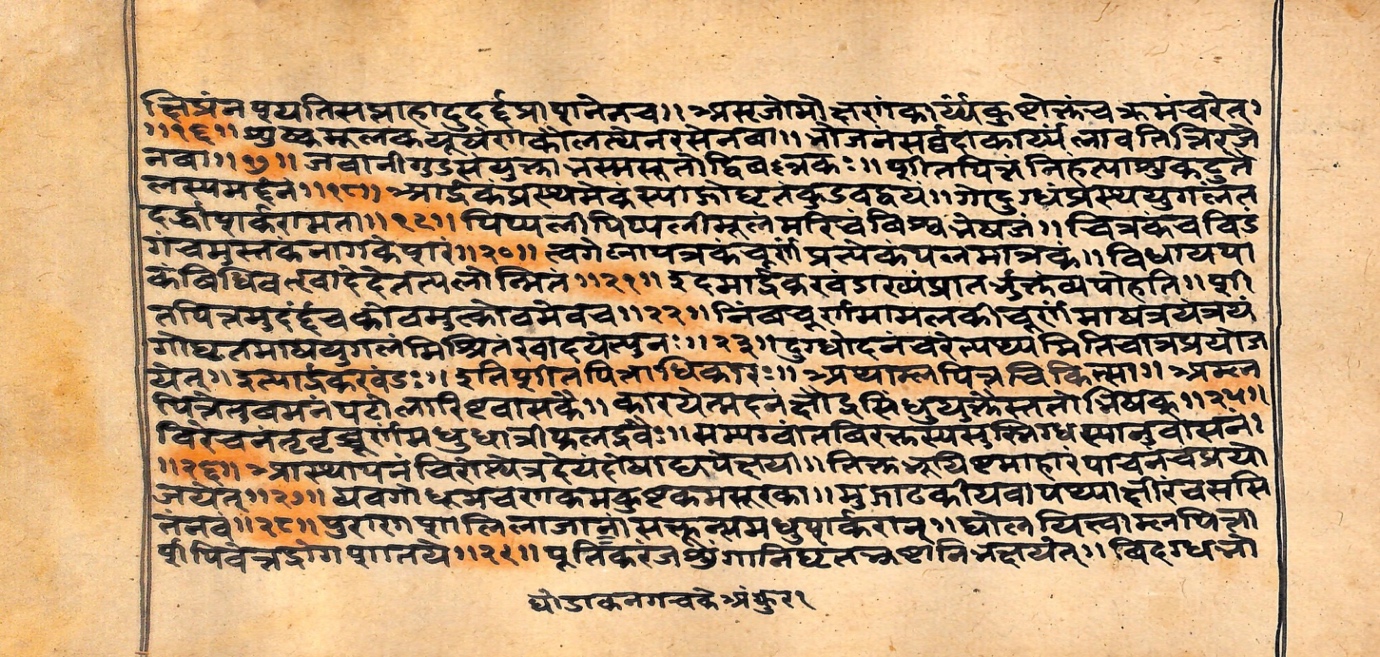 क्षिप्रं न पुष्यति सप्ताहादुदर्द प्राशनेन च॥ प्रसृजोमो क्षारां कार्य्यं कुष्ठोक्तं च क्रमं चरेत्।
॥१६॥ शुष्कमूलकयूषेण कौलत्थेन रसेन वा॥ भोजनं सर्वदा कार्य्यं लावतित्तिरजे
न वा॥१७॥ जवानी गुडसंयुक्ता भस्मसूतो द्विवल्लकः॥ शीतपित्तं निहंत्याशु कटुतै
लस्य मर्दनं॥१८॥ आर्द्रकं प्रस्थमेकं स्याद्गोघृतं कुडवद्वयं॥ गोदुग्धं प्रस्थयुगलं त
दर्द्धा शर्करा मता॥१९॥ पिप्पली पिप्पलीमूलं मरिचं विश्वभेषजं॥ चित्रकं च विडं
गं च मुस्तकं नागकेशरं॥२०॥ त्वगेलापत्रकं चूर्णं प्रत्येकं पलमात्रकं॥ विधाय पा
कं विधिवत्खादेदेतत्पलोन्मितं॥२१॥ इदमार्द्रकखंडाख्यं प्रातर्भुक्तं व्यपोहति॥ शी
तपित्तमुदर्दं च कोठमुत्कोठमेव च॥२२॥ निंबचूर्णमामलकीचूर्णं माषत्रयं त्रयं
गोघृतमाषयुगलं मिश्रितं खादयेत्पुनः॥२३॥ दुग्धोदनं चरेत्पथ्यमितिचात्र प्रयोज
येत्॥ इत्यार्द्रकखंडः॥ इति शीतपित्ताधिकारः॥ अथाम्लपित्तचिकित्सा॥ अम्ल
पित्ते तु वमनं पटोलारिष्टवासकैः॥ कारयेत्मदनं क्षौद्रसिंधुयुक्तैस्ततो भिषक्॥२५॥
विरेचनं तृवृच्चूर्णं मधुधात्रीफलद्रवैः॥ सम्यग्वांतविरक्तस्य सुस्निग्धस्यानुवासनं।
॥२६॥ आस्थापनं चिरोत्थेत्र देयं दोषाद्यपेक्षया॥ तिक्तभूयिष्टमाहारं पाचनं च प्रयो
जयेत्॥२७॥ यवगोधूमचणकमकुष्टकमसूरका॥ मुद्गाढकीयवा पथ्या क्षीरं च ससि
तं नवं॥२८॥ पुराणशालिलाजानां सक्तून्समधुशर्करान्॥ घोलयित्वाम्लपित्तो
शी पिबेत्तद्रोगशांतये॥२९॥ पूतिकरंजशुंगानि घृतभृष्टानि भक्षयेत्॥ विदग्धभो